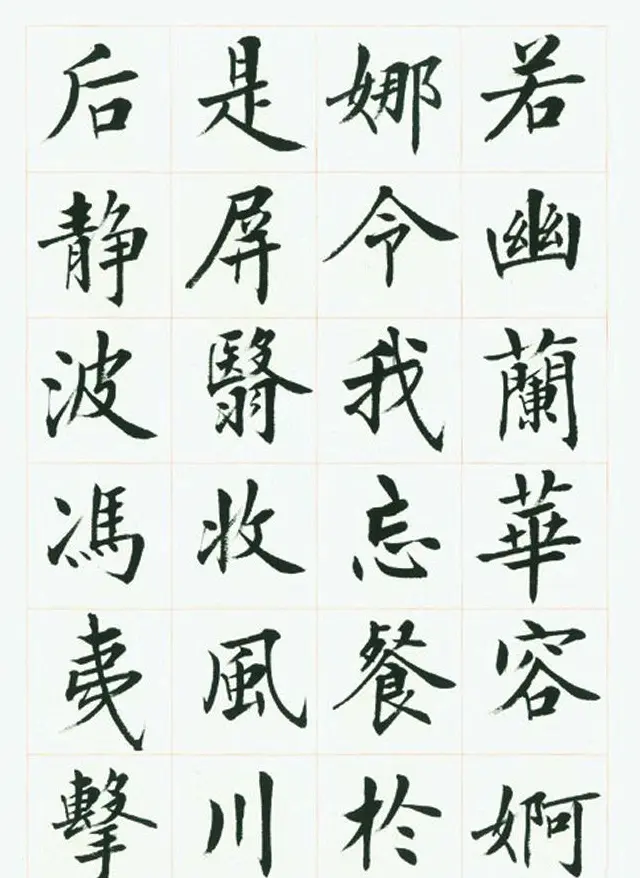 若幽蘭華容婀
娜令我忘餐於
是屏翳收風川
后静波馮夷擊